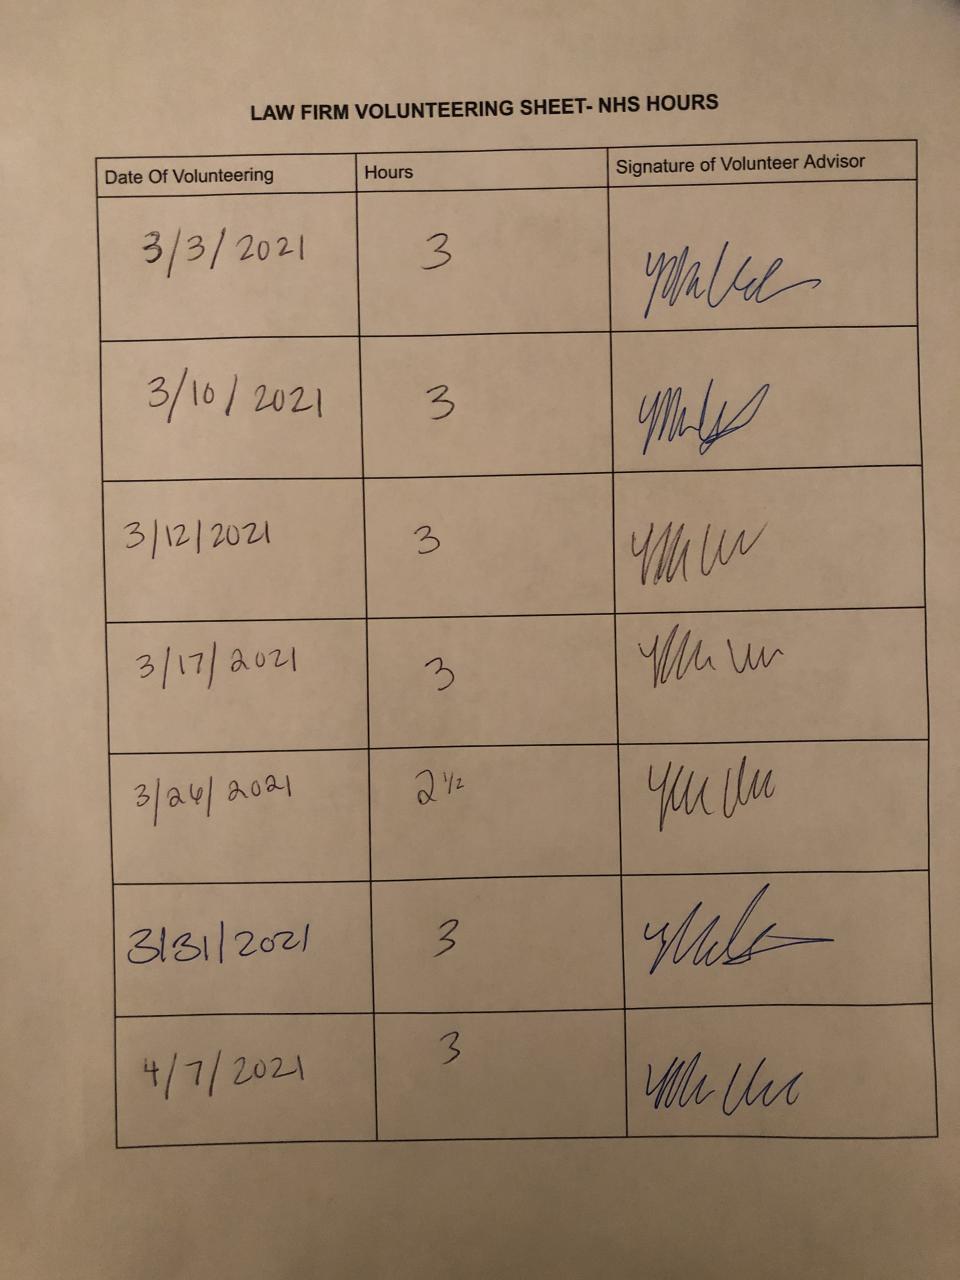 LAW FIRM VOLUNTEERING SHEET- NHS HOURS
Date Of Volunteering Hours Signature of Volunteer Advisor
3/3/2021 3
3/10/2021 3
3/12/2021 3
3/17/2021 3
3/24/2021 2 1/2
3/31/2021 3
4/7/2021 3